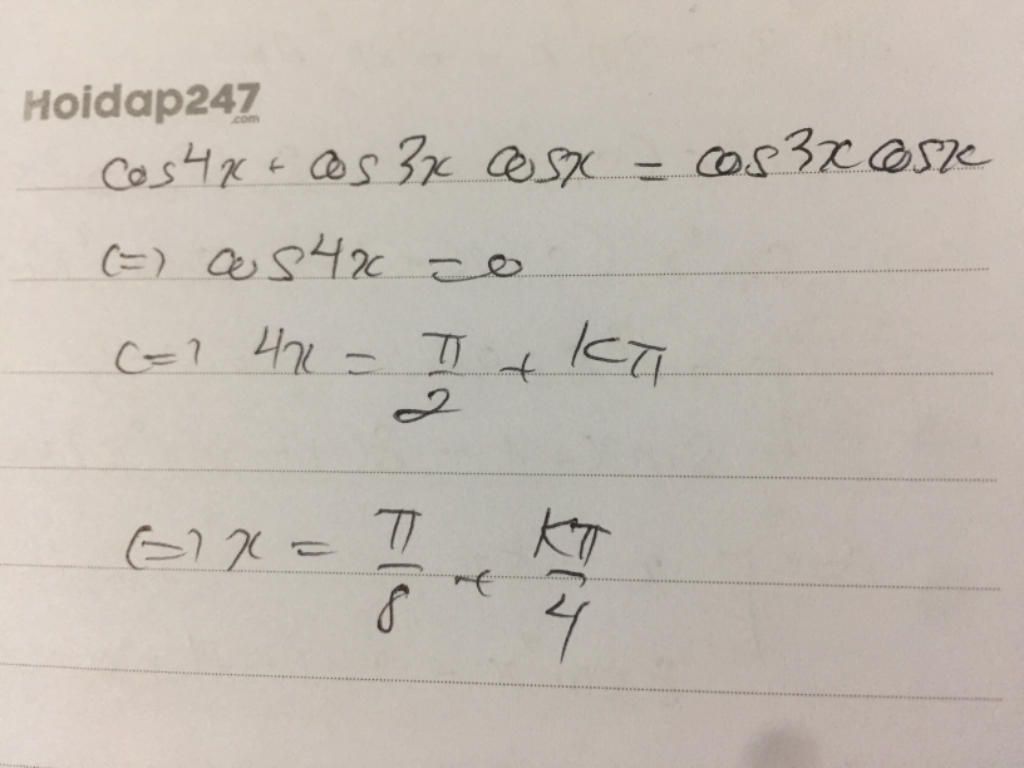 Hoidap247
.com
cos4x + cos3x cosx = cos3x cosx
(=) cos4x = 0
(=) 4x = π/2 + kπ
(=) x = π/8 + kπ/4